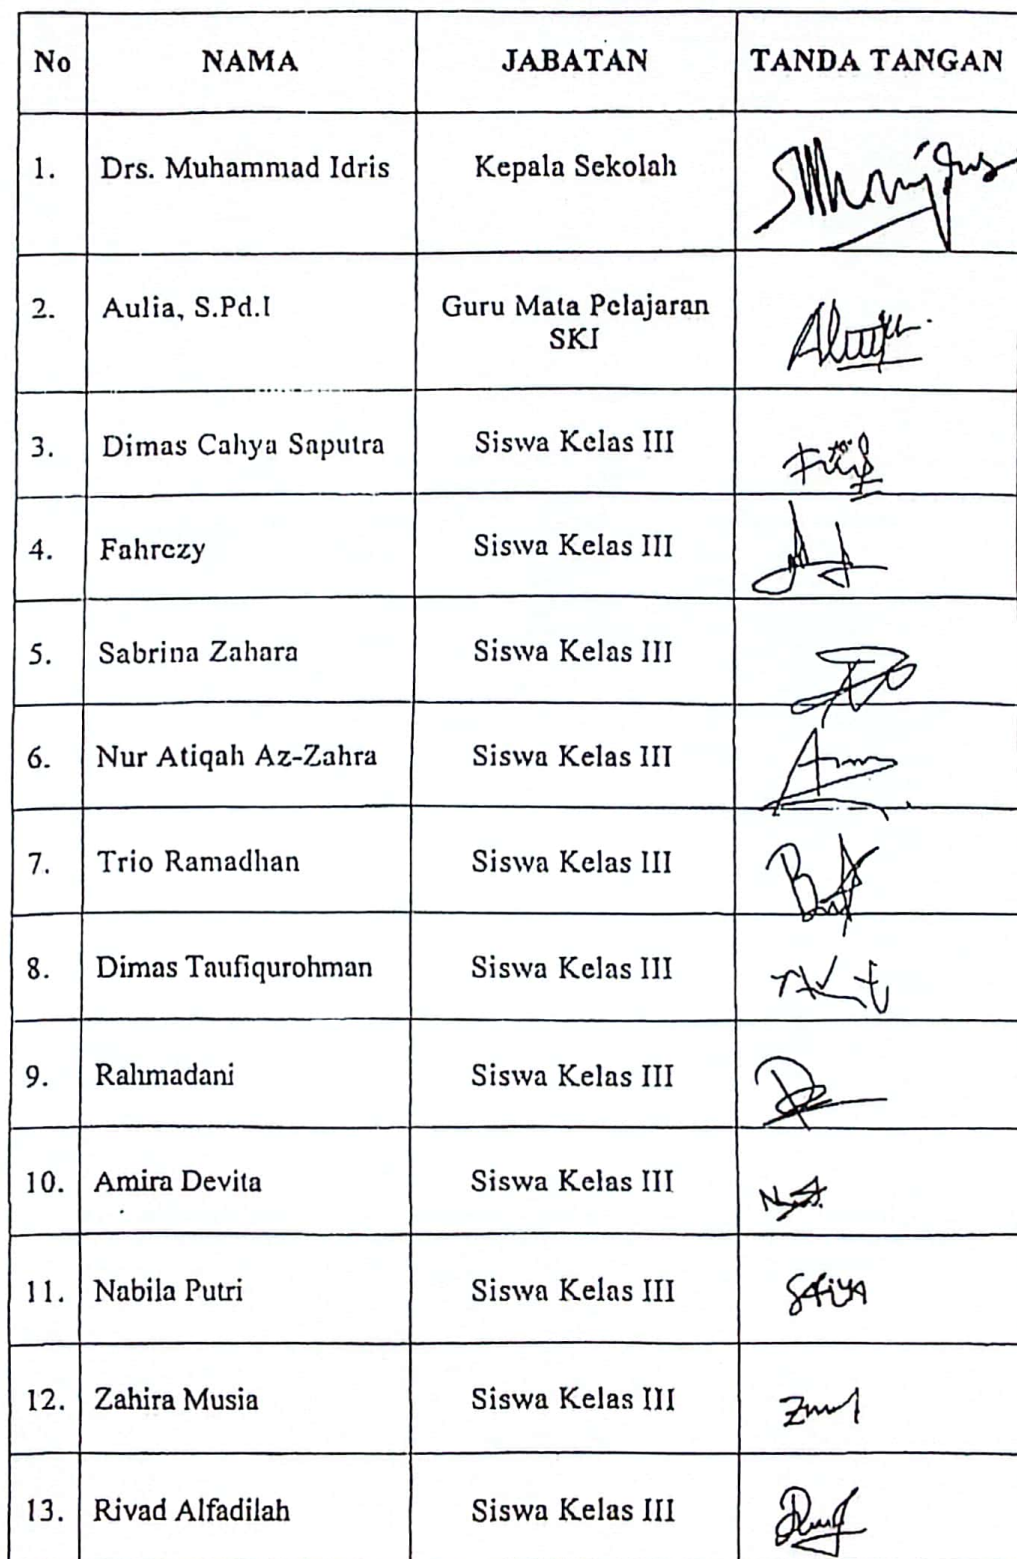 No NAMA JABATAN TANDA TANGAN
1. Drs. Muhammad Idris Kepala Sekolah
2. Aulia, S.Pd.I Guru Mata Pelajaran
SKI
3. Dimas Cahya Saputra Siswa Kelas III
4. Fahrezy Siswa Kelas III
5. Sabrina Zahara Siswa Kelas III
6. Nur Atiqah Az-Zahra Siswa Kelas III
7. Trio Ramadhan Siswa Kelas III
8. Dimas Taufiqurohman Siswa Kelas III
9. Rahmadani Siswa Kelas III
10. Amira Devita Siswa Kelas III
11. Nabila Putri Siswa Kelas III Safiya
12. Zahira Musia Siswa Kelas III
13. Rivad Alfadilah Siswa Kelas III